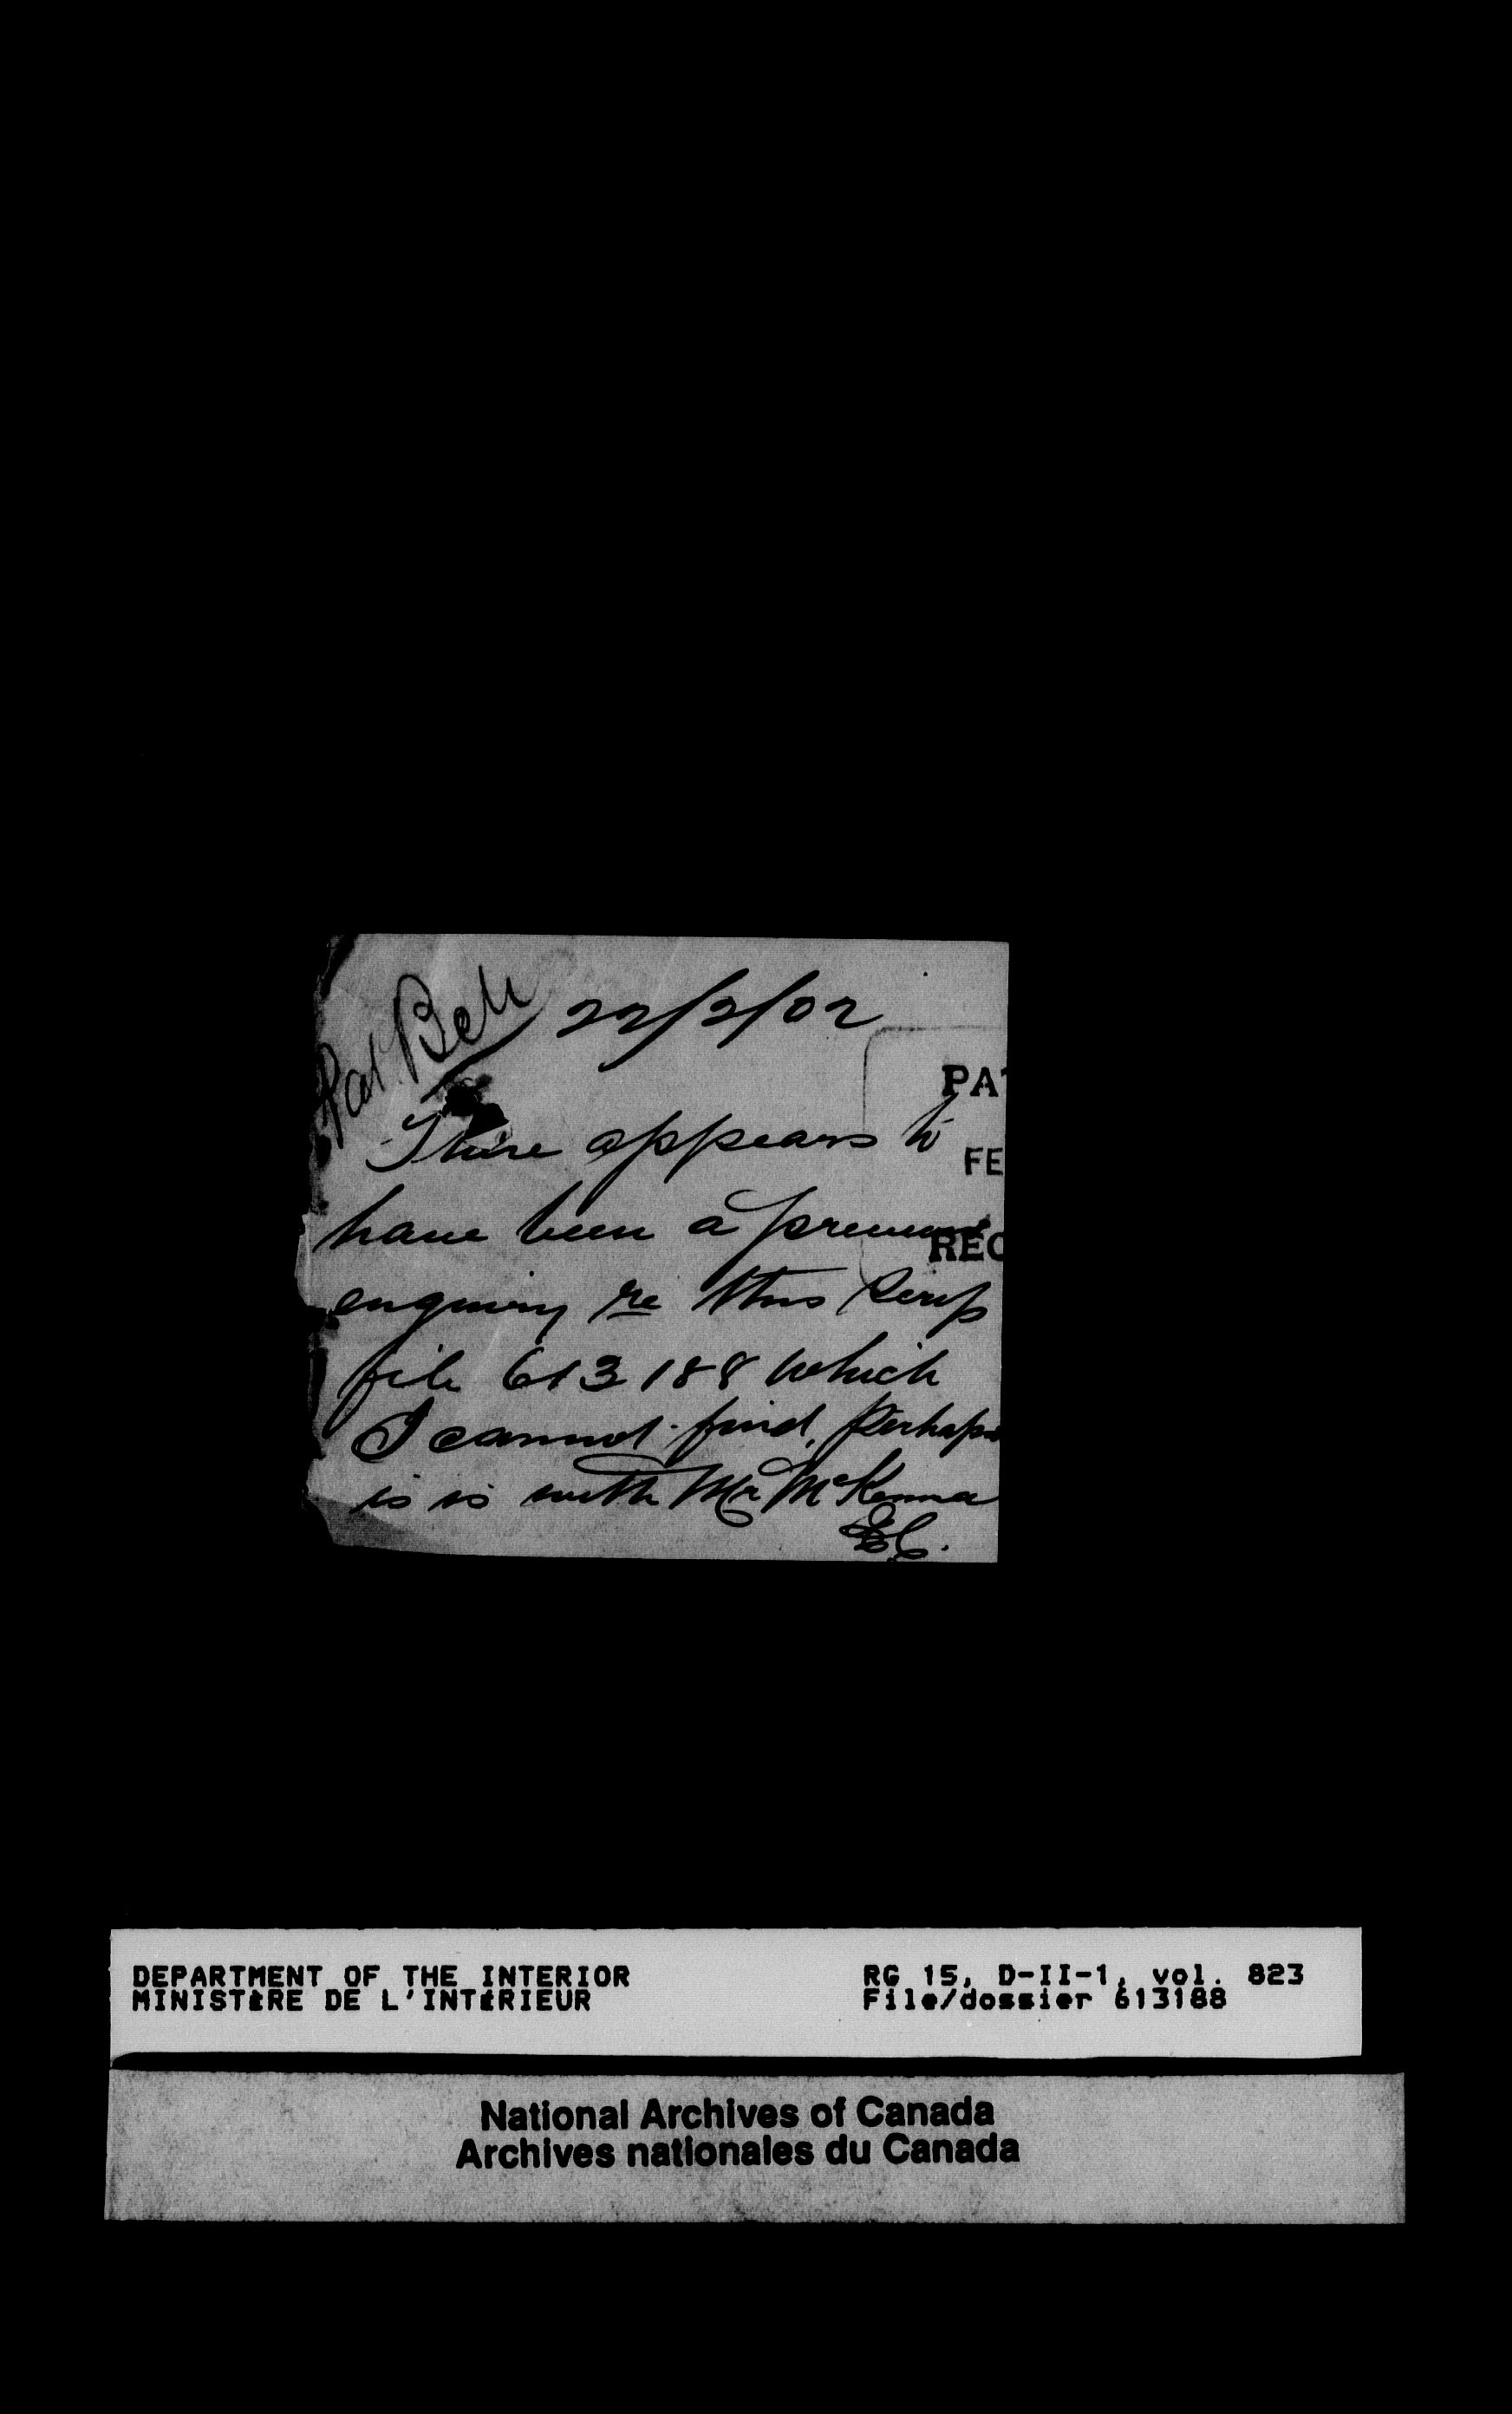 Pat Bell 22/2/02
PAT
There appears to
FE
have been a previous
REC
enquiry re this Scrip
file 613188 which
I cannot find, Perhaps
is is with Mr McKenna
DEPARTMENT OF THE INTERIOR
MINISTÈRE DE L'INTÉRIEUR
RG 15, D-II-1, vol. 823
File/dossier 613188
National Archives of Canada
Archives nationales du Canada